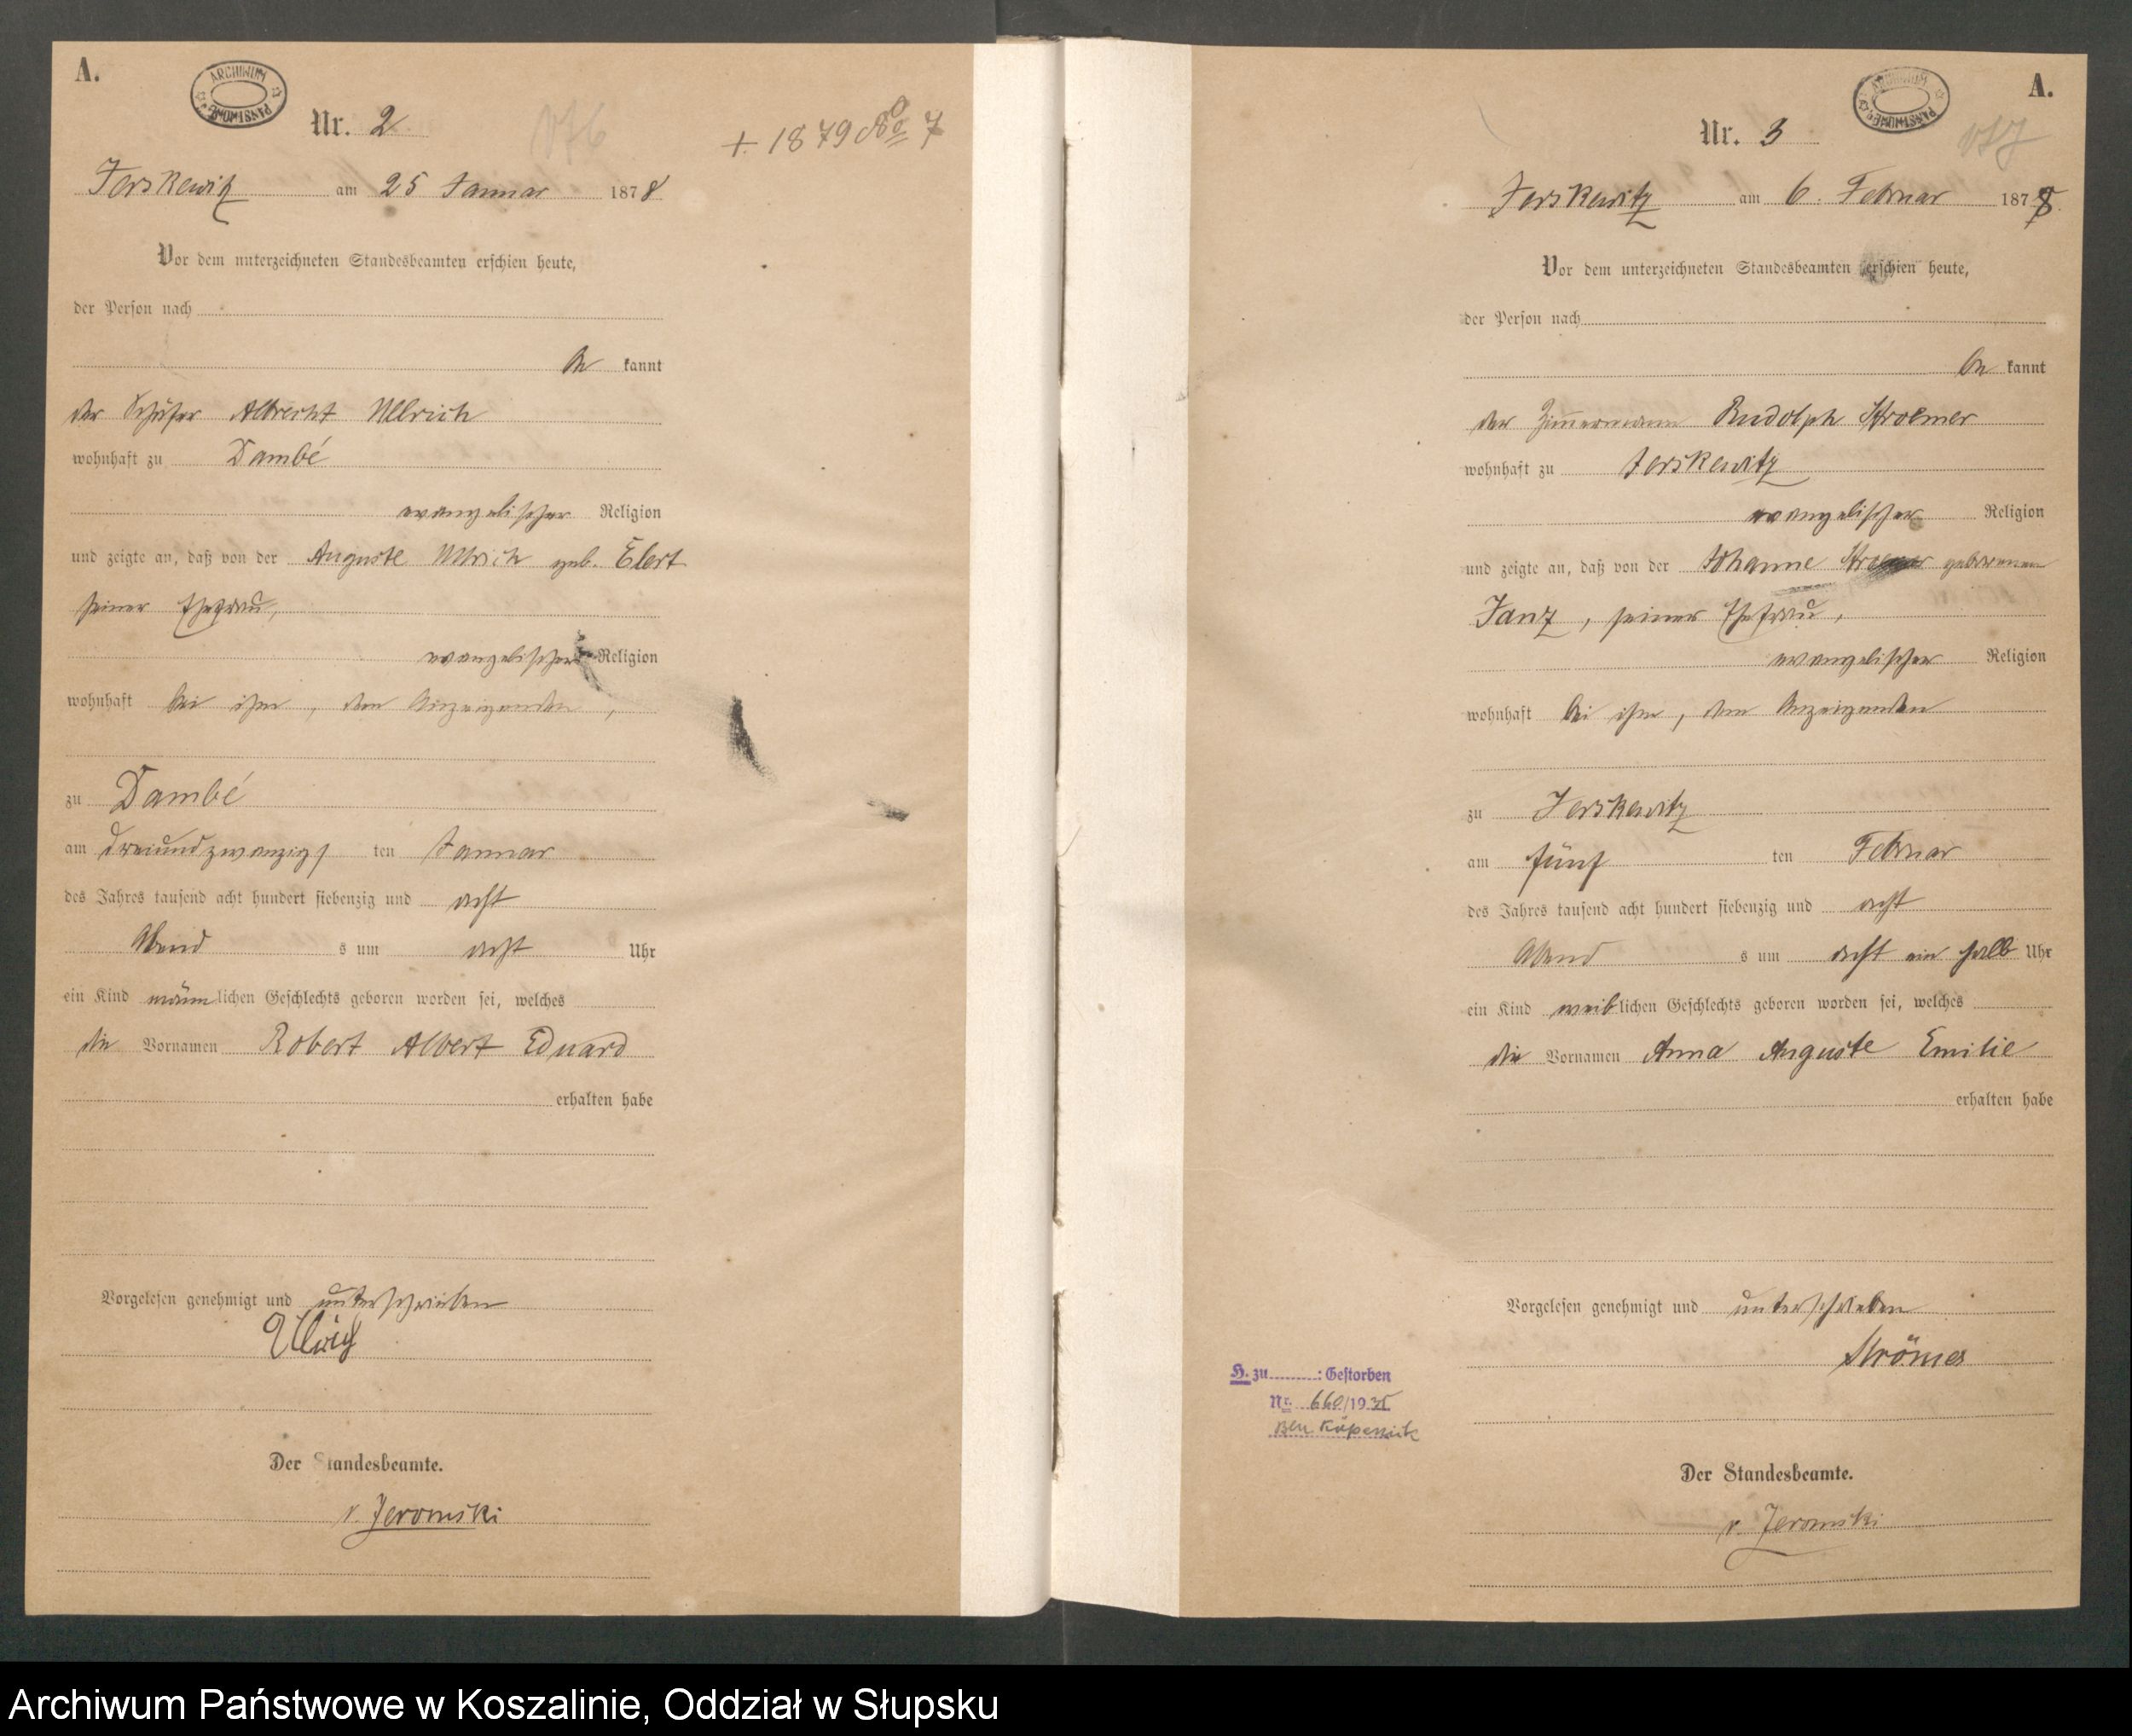 A.
ARCHIWUM PAŃSTWOWE
Nr. 2
+ 1879 No 7
Jerskewitz am 25 Januar 1878
Vor dem unterzeichneten Standesbeamten erschien heute,
der Person nach
be kannt
der Schäfer Albrecht Ullrich
wohnhaft zu Dambé
evangelischer Religion
und zeigte an, daß von der Auguste Ullrich geb. Elert
seiner Ehefrau,
evangelischer Religion
wohnhaft bei ihm, dem Anzeigenden,
zu Dambé
am dreiundzwanzigs ten Januar
des Jahres tausend acht hundert siebenzig und acht
Abend s um acht Uhr
ein Kind männlichen Geschlechts geboren worden sei, welches
die Vornamen Robert Albert Eduard
erhalten habe
Vorgelesen genehmigt und unterschrieben
Ullrich
Der Standesbeamte.
v. Jeromski
A.
ARCHIWUM PAŃSTWOWE
Nr. 3
Jerskewitz am 6. Februar 1878
Vor dem unterzeichneten Standesbeamten erschien heute,
der Person nach
be kannt
der Zimmermann Rudolph Kroemer
wohnhaft zu Jerskewitz
evangelischer Religion
und zeigte an, daß von der Johanne Kroemer geborenen
Janz, seiner Ehefrau,
evangelischer Religion
wohnhaft bei ihm, dem Anzeigenden
zu Jerskewitz
am fünf ten Februar
des Jahres tausend acht hundert siebenzig und acht
Abend s um acht ein halb Uhr
ein Kind weiblichen Geschlechts geboren worden sei, welches
die Vornamen Anna Auguste Emilie
erhalten habe
Vorgelesen genehmigt und unterschrieben
Krömer
H. zu : Gestorben
Nr. 660/19
Bln Köpenick
Der Standesbeamte.
v. Jeromski
Archiwum Państwowe w Koszalinie, Oddział w Słupsku